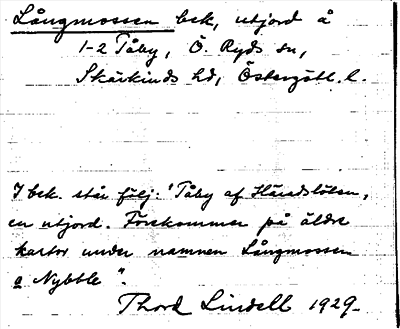 Långmossen bek, utjord å
1-2 Tåby, Ö. Ryds sn,
Skärkinds hd, Östergötl. l.
I bek. står följ: "Tåby af Häradslösen,
en utjord. Förekommer på äldre
kartor under namnen Långmossen
o Nybble".
Thord Lindell 1929.